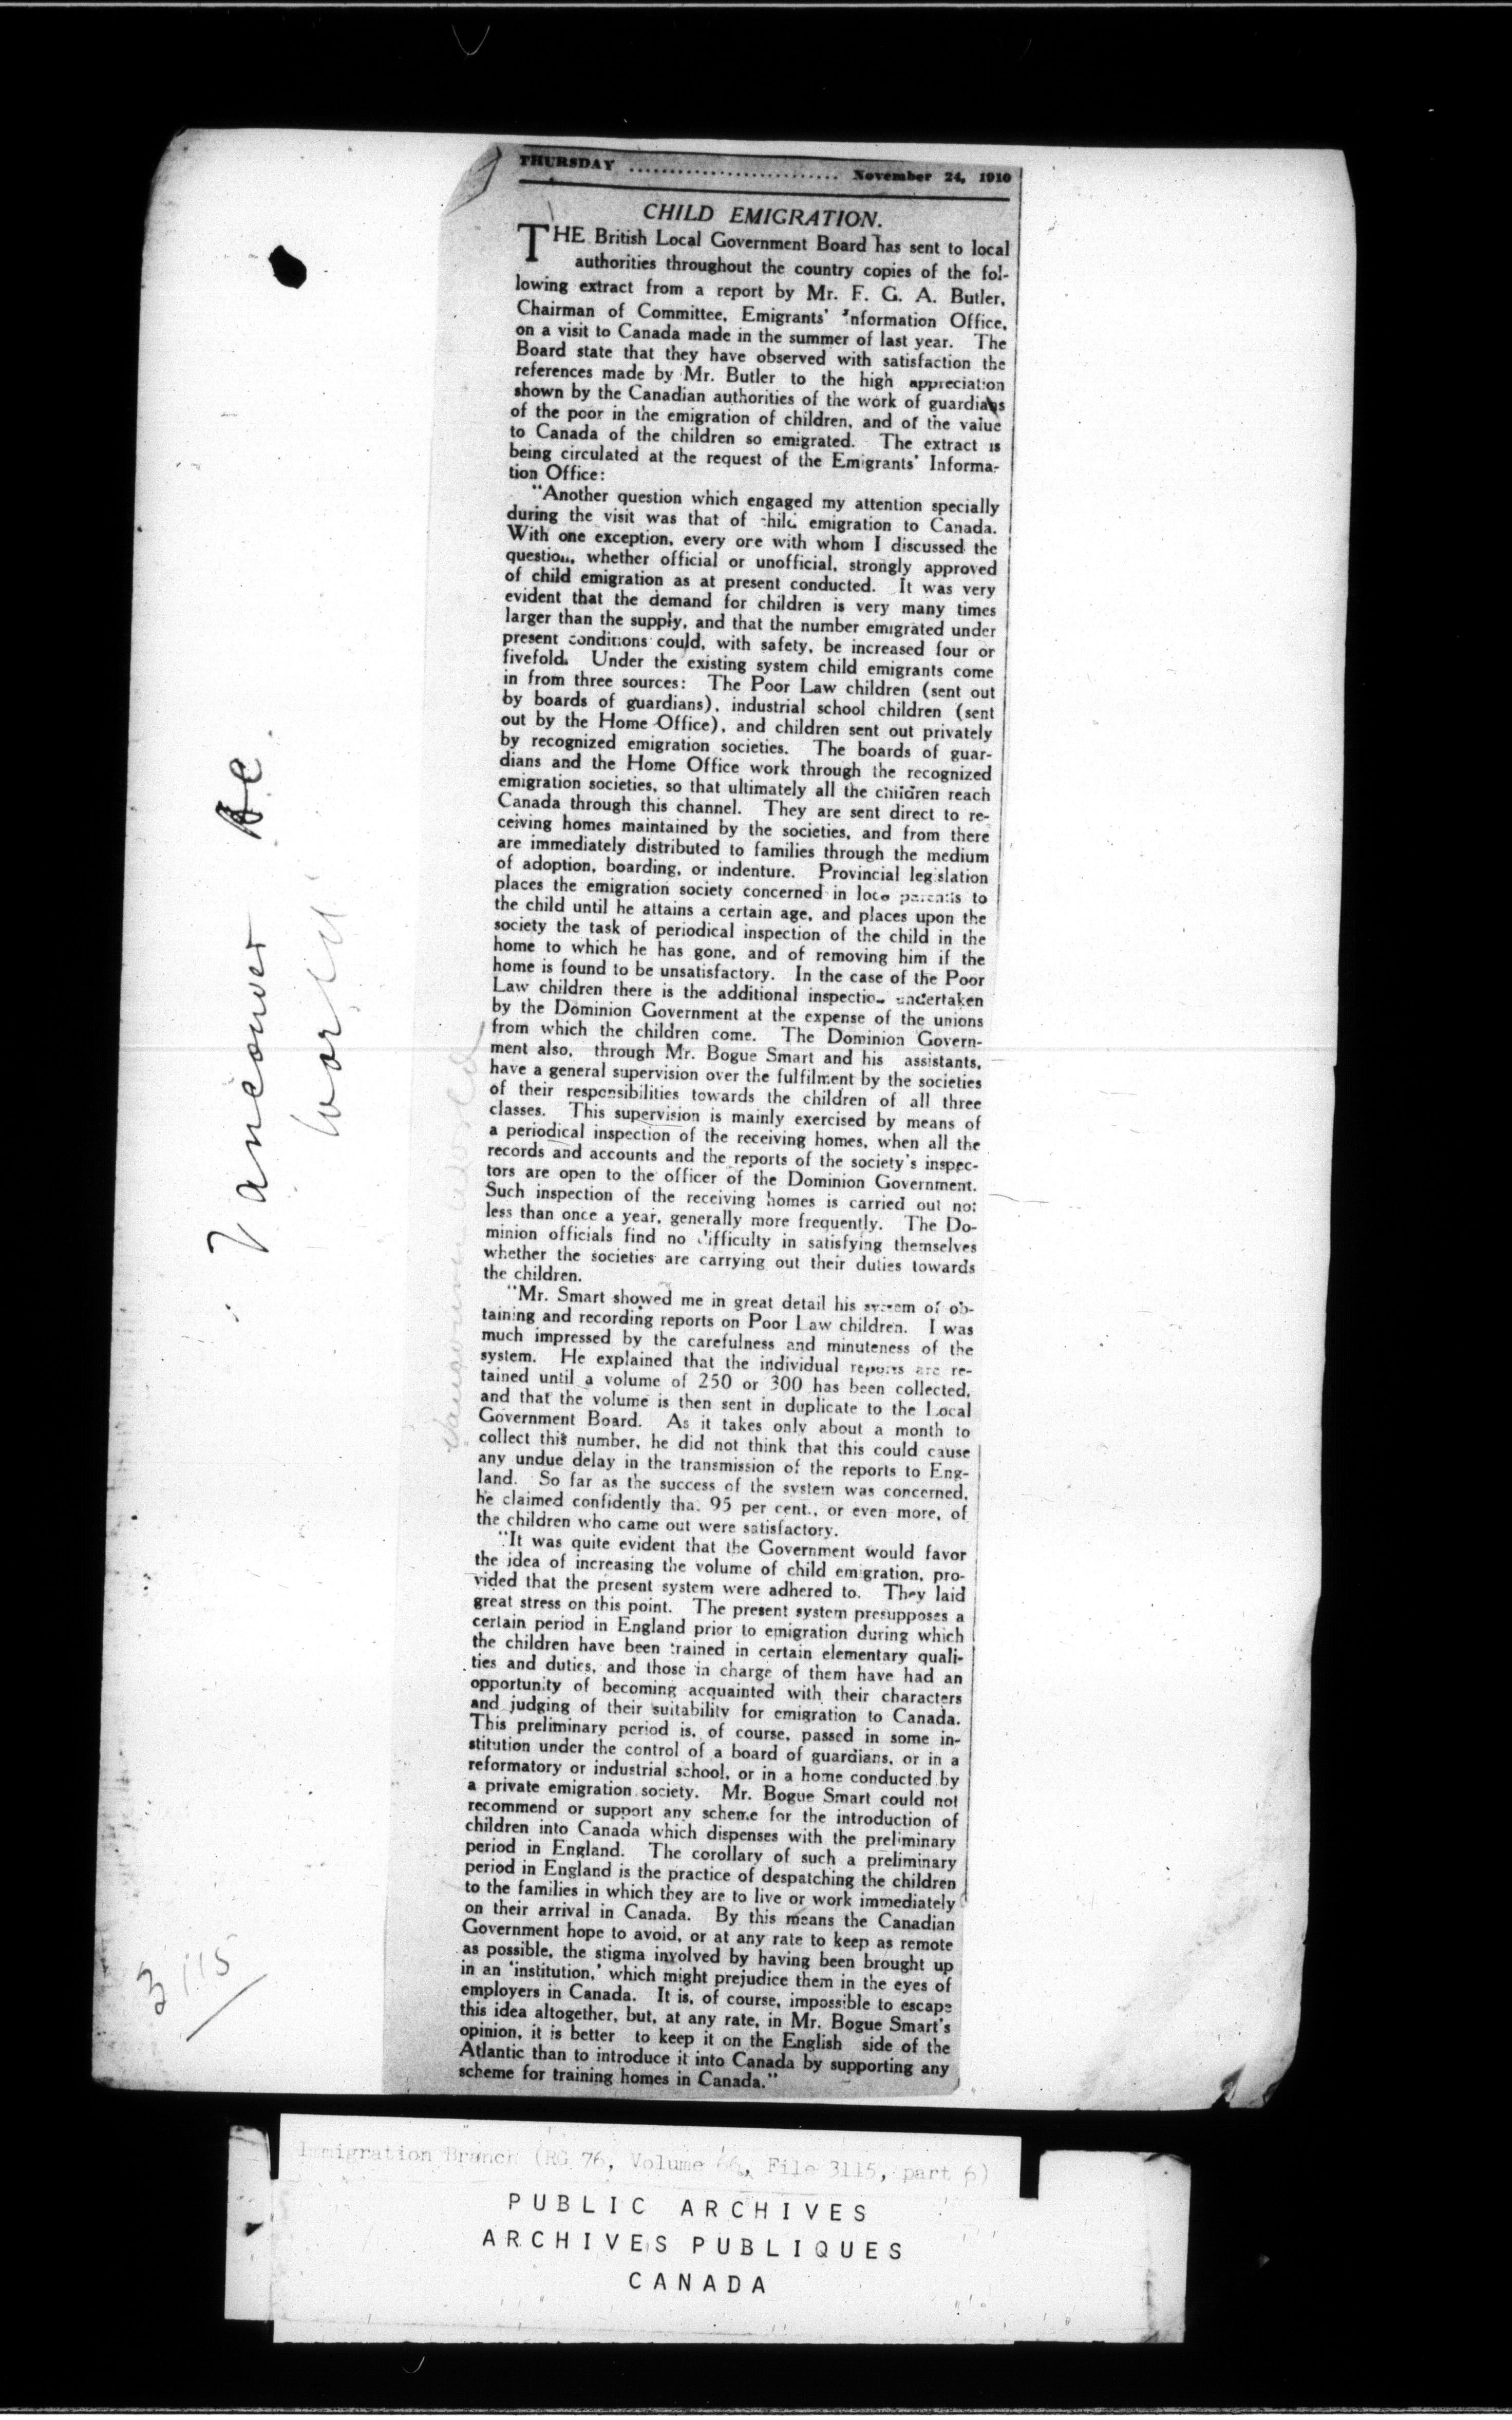 THURSDAY .......................... November 24, 1910
CHILD EMIGRATION.
THE British Local Government Board has sent to local
authorities throughout the country copies of the fol-
lowing extract from a report by Mr. F. G. A. Butler,
Chairman of Committee, Emigrants' Information Office,
on a visit to Canada made in the summer of last year. The
Board state that they have observed with satisfaction the
references made by Mr. Butler to the high appreciation
shown by the Canadian authorities of the work of guardians
of the poor in the emigration of children, and of the value
to Canada of the children so emigrated. The extract is
being circulated at the request of the Emigrants' Informa-
tion Office:
"Another question which engaged my attention specially
during the visit was that of child emigration to Canada.
With one exception, every one with whom I discussed the
question, whether official or unofficial, strongly approved
of child emigration as at present conducted. It was very
evident that the demand for children is very many times
larger than the supply, and that the number emigrated under
present conditions could, with safety, be increased four or
fivefold. Under the existing system child emigrants come
in from three sources: The Poor Law children (sent out
by boards of guardians), industrial school children (sent
out by the Home Office), and children sent out privately
by recognized emigration societies. The boards of guar-
dians and the Home Office work through the recognized
emigration societies, so that ultimately all the children reach
Canada through this channel. They are sent direct to re-
ceiving homes maintained by the societies, and from there
are immediately distributed to families through the medium
of adoption, boarding, or indenture. Provincial legislation
places the emigration society concerned in loco parentis to
the child until he attains a certain age, and places upon the
society the task of periodical inspection of the child in the
home to which he has gone, and of removing him if the
home is found to be unsatisfactory. In the case of the Poor
Law children there is the additional inspection undertaken
by the Dominion Government at the expense of the unions
from which the children come. The Dominion Govern-
ment also, through Mr. Bogue Smart and his assistants,
have a general supervision over the fulfilment by the societies
of their responsibilities towards the children of all three
classes. This supervision is mainly exercised by means of
a periodical inspection of the receiving homes, when all the
records and accounts and the reports of the society's inspec-
tors are open to the officer of the Dominion Government.
Such inspection of the receiving homes is carried out not
less than once a year, generally more frequently. The Do-
minion officials find no difficulty in satisfying themselves
whether the societies are carrying out their duties towards
the children.
"Mr. Smart showed me in great detail his system of ob-
taining and recording reports on Poor Law children. I was
much impressed by the carefulness and minuteness of the
system. He explained that the individual reports are re-
tained until a volume of 250 or 300 has been collected,
and that the volume is then sent in duplicate to the Local
Government Board. As it takes only about a month to
collect this number, he did not think that this could cause
any undue delay in the transmission of the reports to Eng-
land. So far as the success of the system was concerned,
he claimed confidently that 95 per cent., or even more, of
the children who came out were satisfactory.
"It was quite evident that the Government would favor
the idea of increasing the volume of child emigration, pro-
vided that the present system were adhered to. They laid
great stress on this point. The present system presupposes a
certain period in England prior to emigration during which
the children have been trained in certain elementary quali-
ties and duties, and those in charge of them have had an
opportunity of becoming acquainted with their characters
and judging of their suitability for emigration to Canada.
This preliminary period is, of course, passed in some in-
stitution under the control of a board of guardians, or in a
reformatory or industrial school, or in a home conducted by
a private emigration society. Mr. Bogue Smart could not
recommend or support any scheme for the introduction of
children into Canada which dispenses with the preliminary
period in England. The corollary of such a preliminary
period in England is the practice of despatching the children
to the families in which they are to live or work immediately
on their arrival in Canada. By this means the Canadian
Government hope to avoid, or at any rate to keep as remote
as possible, the stigma involved by having been brought up
in an 'institution,' which might prejudice them in the eyes of
employers in Canada. It is, of course, impossible to escape
this idea altogether, but, at any rate, in Mr. Bogue Smart's
opinion, it is better to keep it on the English side of the
Atlantic than to introduce it into Canada by supporting any
scheme for training homes in Canada."
Vancouver BC
World
Vancouver World
3115
Immigration Branch (RG 76, Volume 66, File 3115, part 6)
PUBLIC ARCHIVES
ARCHIVES PUBLIQUES
CANADA